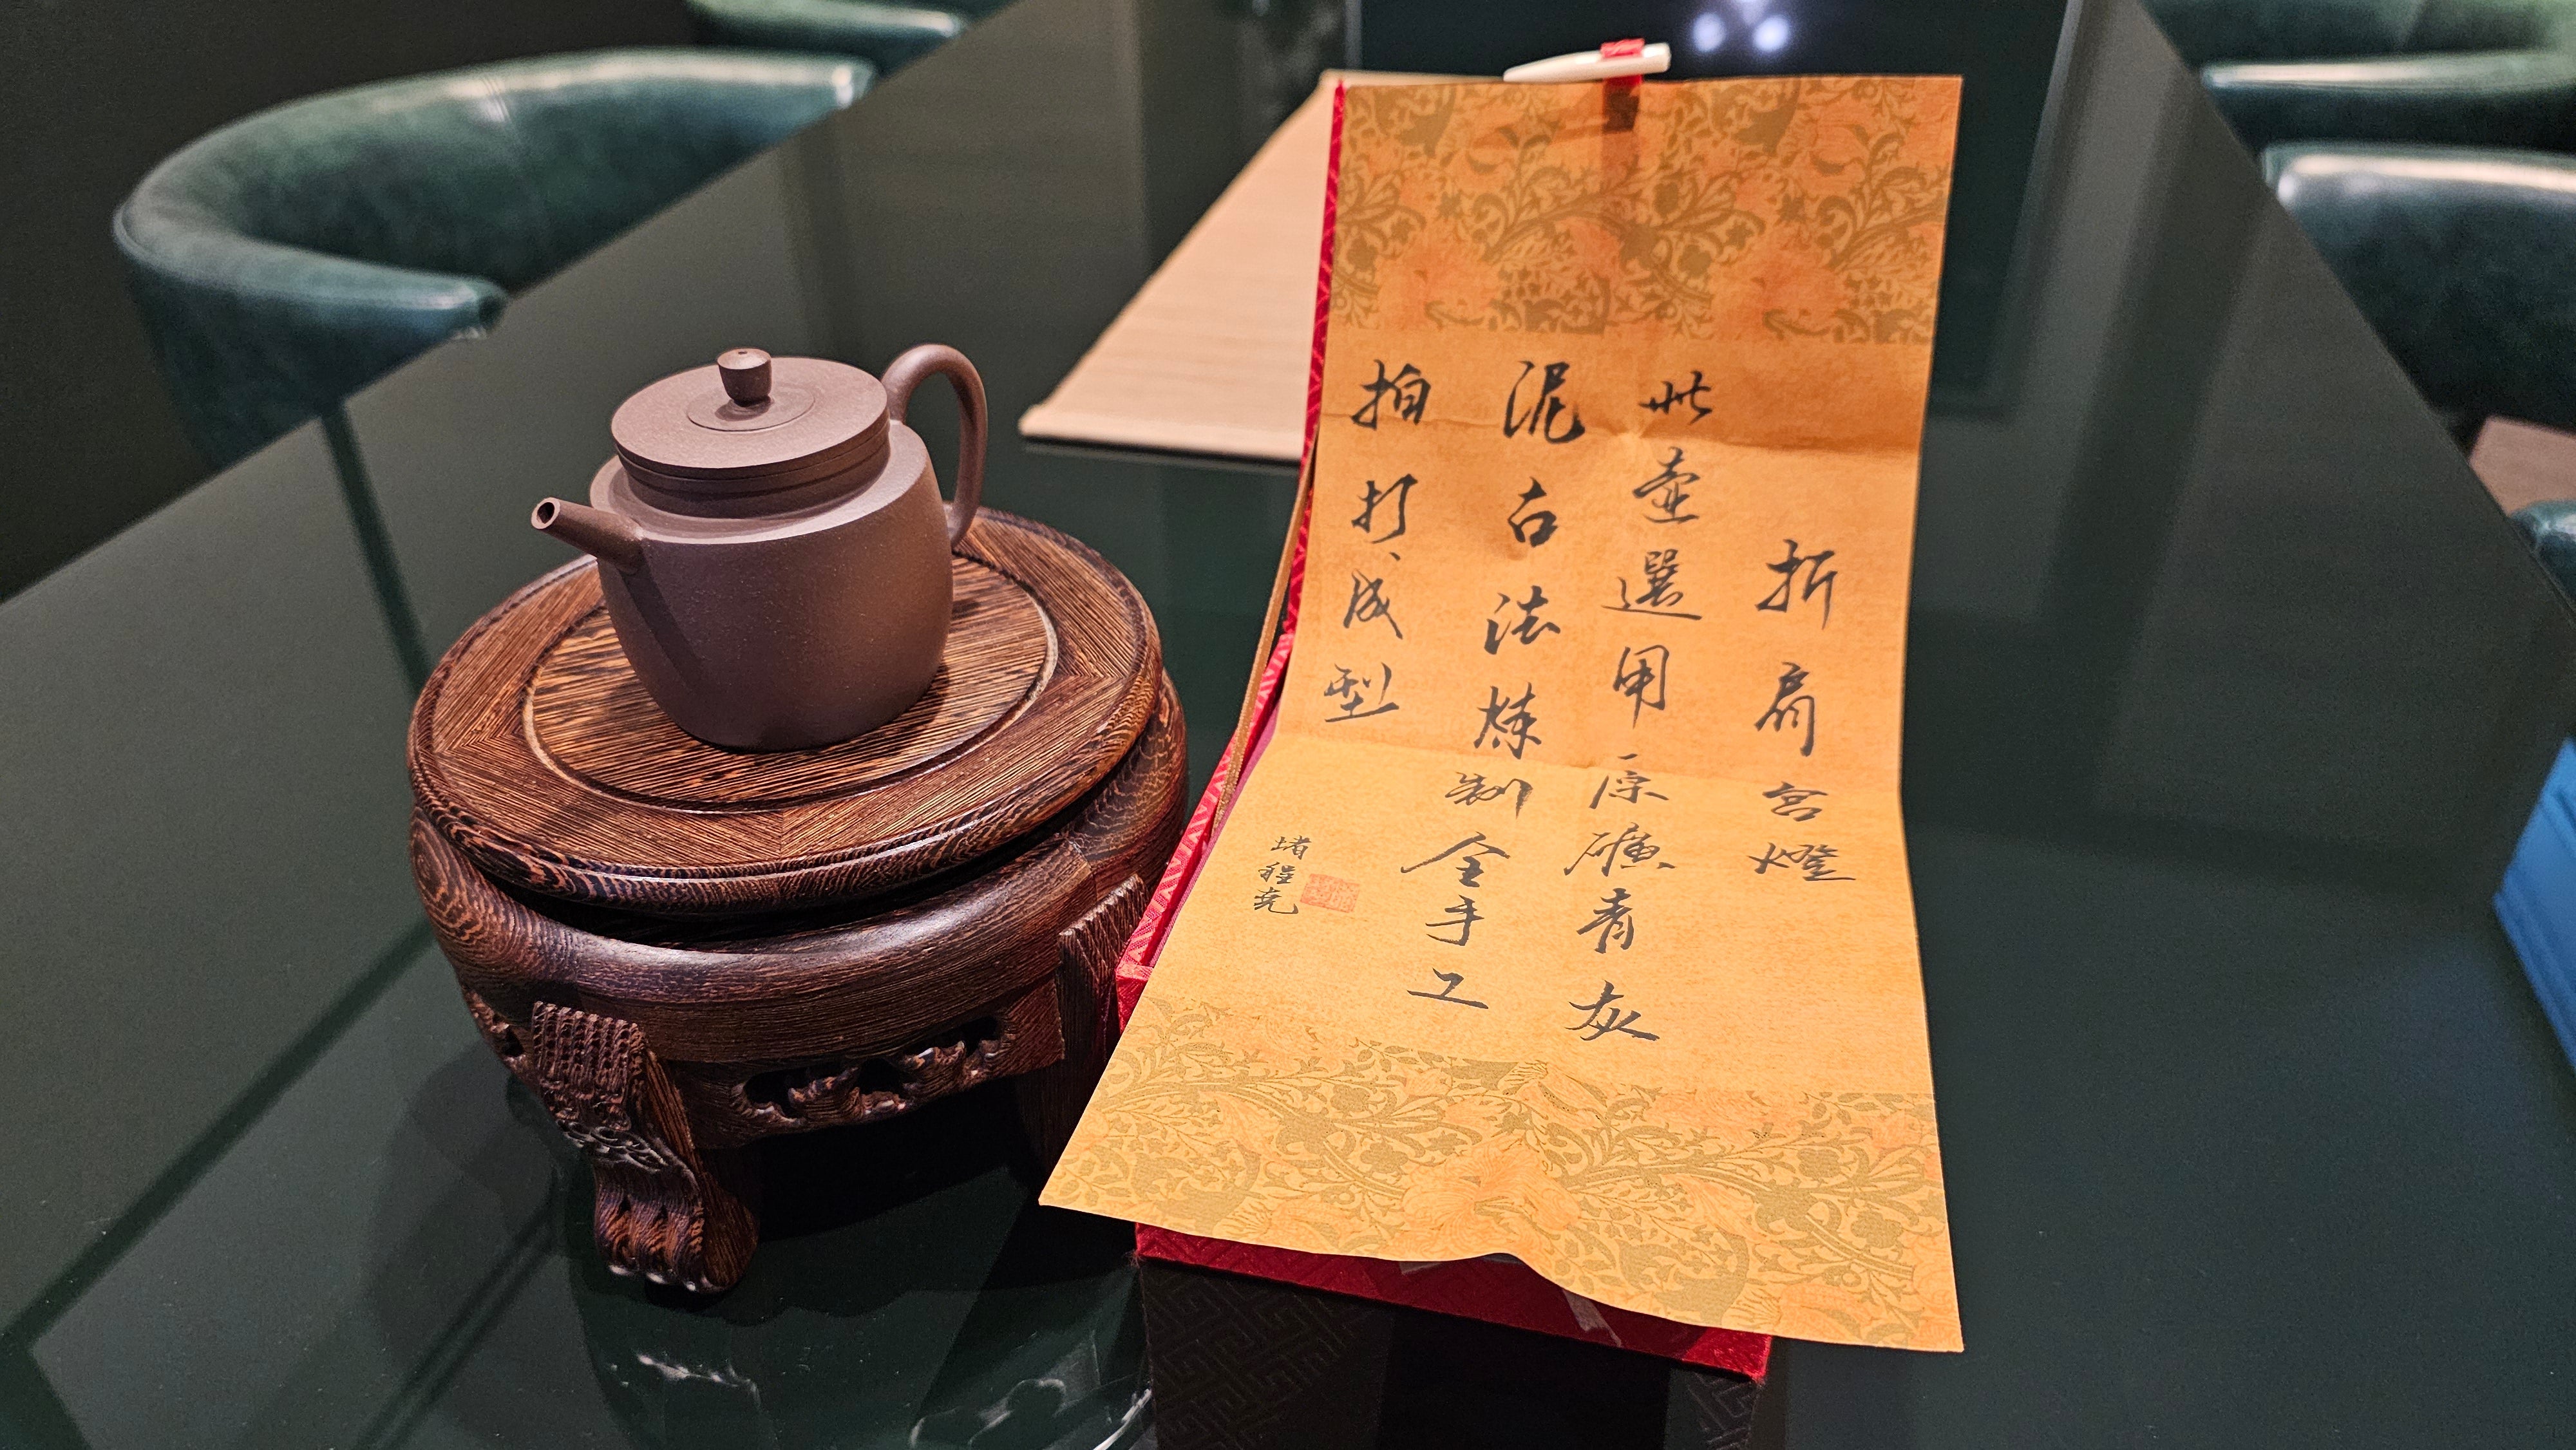 折肩宮燈
此壶選用原礦青灰
泥古法煉制全手工
拍打成型
堵程尧